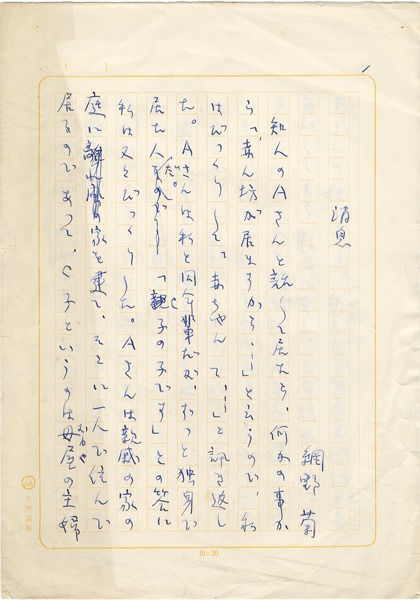 消息
網野 菊
知人のAさんと話して居たら、何かの事か
ら、「赤ん坊が居ますから、…」と云うので、私
はびっくりして「赤ちゃんて、…」と訊き返し
た。Aさんは私と同年輩だが、ずっと独身で
居た人だ。「C子の子です」との答に
私は又々びっくりした。Aさんは親戚の家の
庭に家を建て、そこに一人で住んで
居るのであって、C子というのは母屋の主婦
おもや
10×20